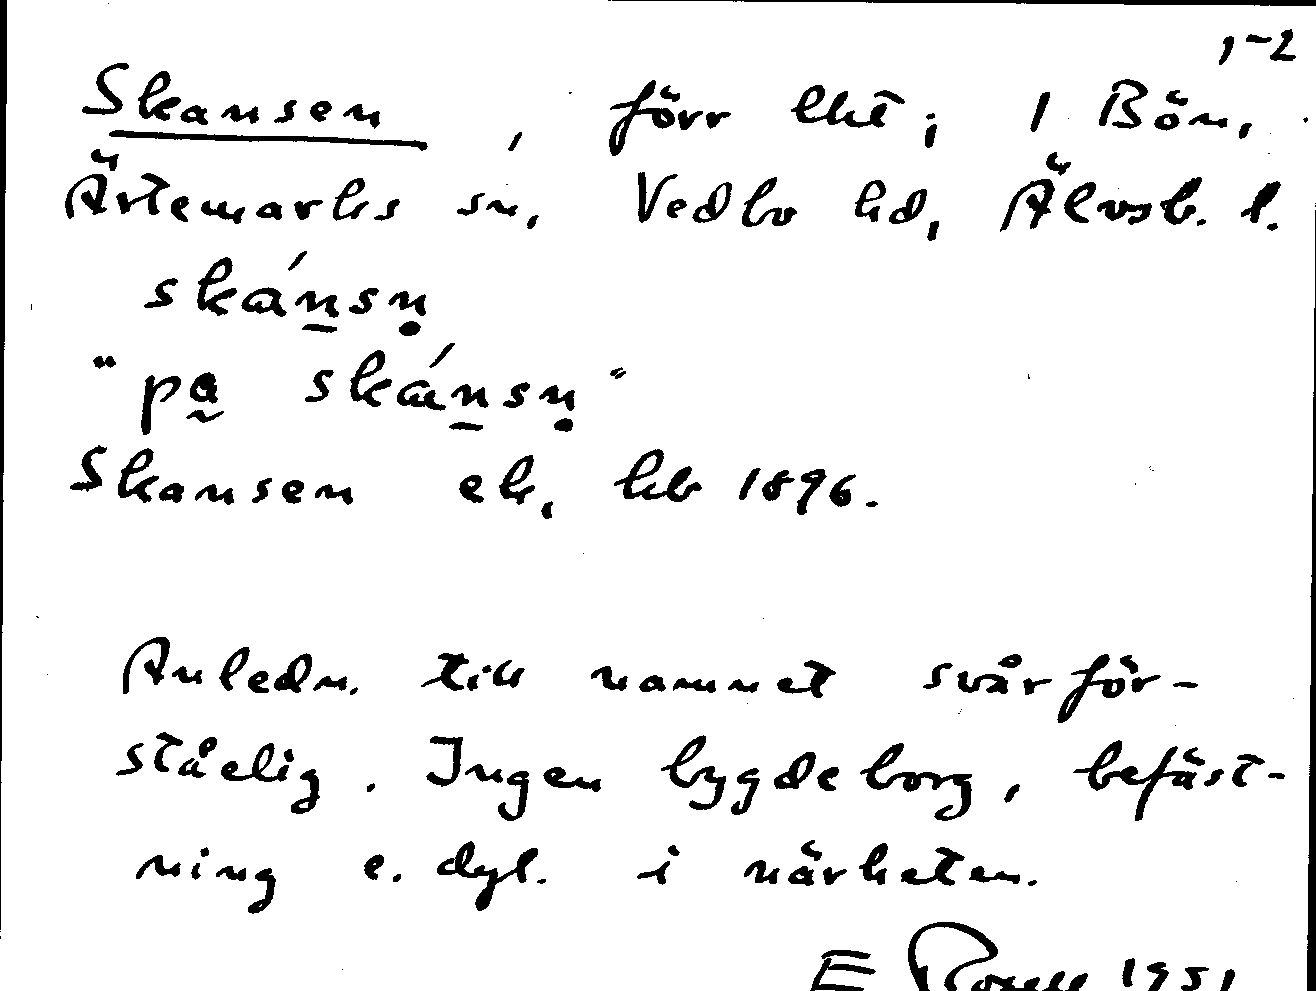 1-2
Skansen, förr lht, 1 Bön,
Ärtemarks sn, Vedbo hd, Älvsb. l.
skánsṇ
"pa skánsṇ"
Skansen ek, hb 1896.
Anledn. till namnet svårför-
ståelig. Ingen bygdeborg, befäst-
ning e. dyl. i närheten.
E 1951